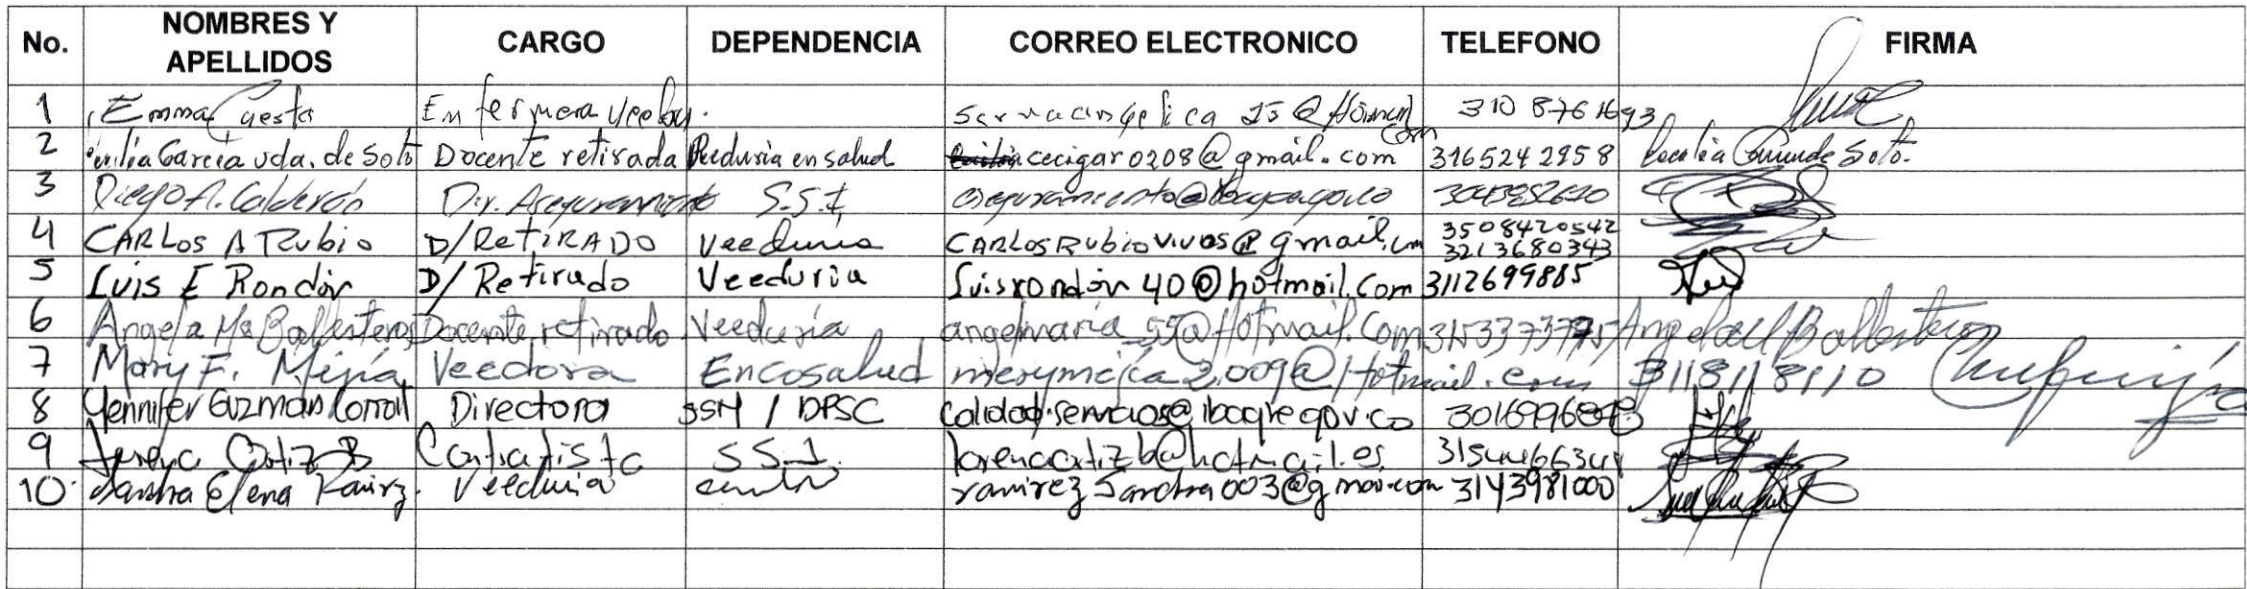 No. NOMBRES Y APELLIDOS CARGO DEPENDENCIA CORREO ELECTRONICO TELEFONO FIRMA
1 Emma Cuesta Enfermera 25@ 310 8761693
2 Cecilia García vda. de Soto Docente retirada Veeduria en salud cecigar0208@gmail.com 3165242958 Cecilia de Soto.
3 Diego A. Calderón Dir. Aseguramiento S.S.I
4 CARLOS A Rubio D/RETIRADO Veeduria CARLOSRubiovivas@gmail.com 3508420542 3213680343
5 Luis E Rondón D/ Retirado Veeduria luisrondon40@hotmail.com 3112699885
6 Angela Ma Ballesteros Docente retirado Veeduria angelmaria_55@Hotmail.com Angela M Ballesteros
7 Mary F. Mejía Veedora Encosalud merymejia2009@Hotmail.com 3118118110
8 Yennifer Guzman Directora SSM / DPSC calidadservicios@ibague.gov.co
9 Lorena Ortiz B Contratista S.S.I. lorenaortizb@hotmail.es
10 Sandra Elena Ramirz. Veeduria ramirezsandra003@gmai.com 3143981000